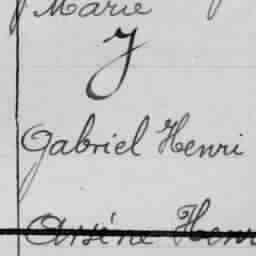 Marie
J
Gabriel Henri
Arsène Henri